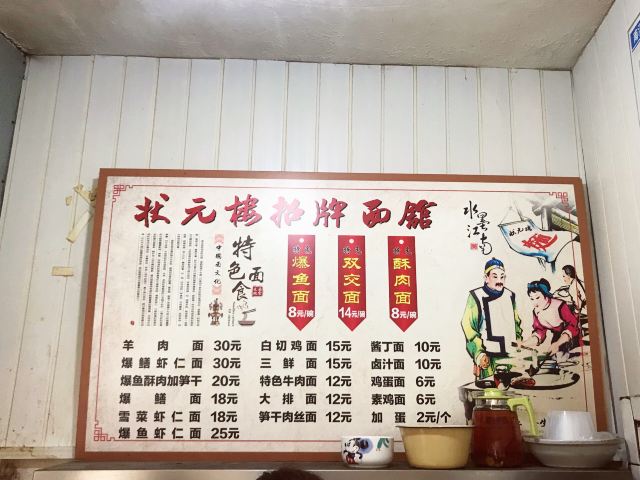 状元楼招牌面馆
水墨江南
状元楼
特色面食
中国面文化
特色
爆鱼面
8元/碗
特色
双交面
14元/碗
特色
酥肉面
8元/碗
羊肉面 30元
爆鳝虾仁面 30元
爆鱼酥肉加笋干 20元
爆鳝面 18元
雪菜虾仁面 18元
爆鱼虾仁面 25元
白切鸡面 15元
三鲜面 15元
特色牛肉面 12元
大排面 12元
笋干肉丝面 12元
酱丁面 10元
卤汁面 10元
鸡蛋面 6元
素鸡面 6元
加蛋 2元/个